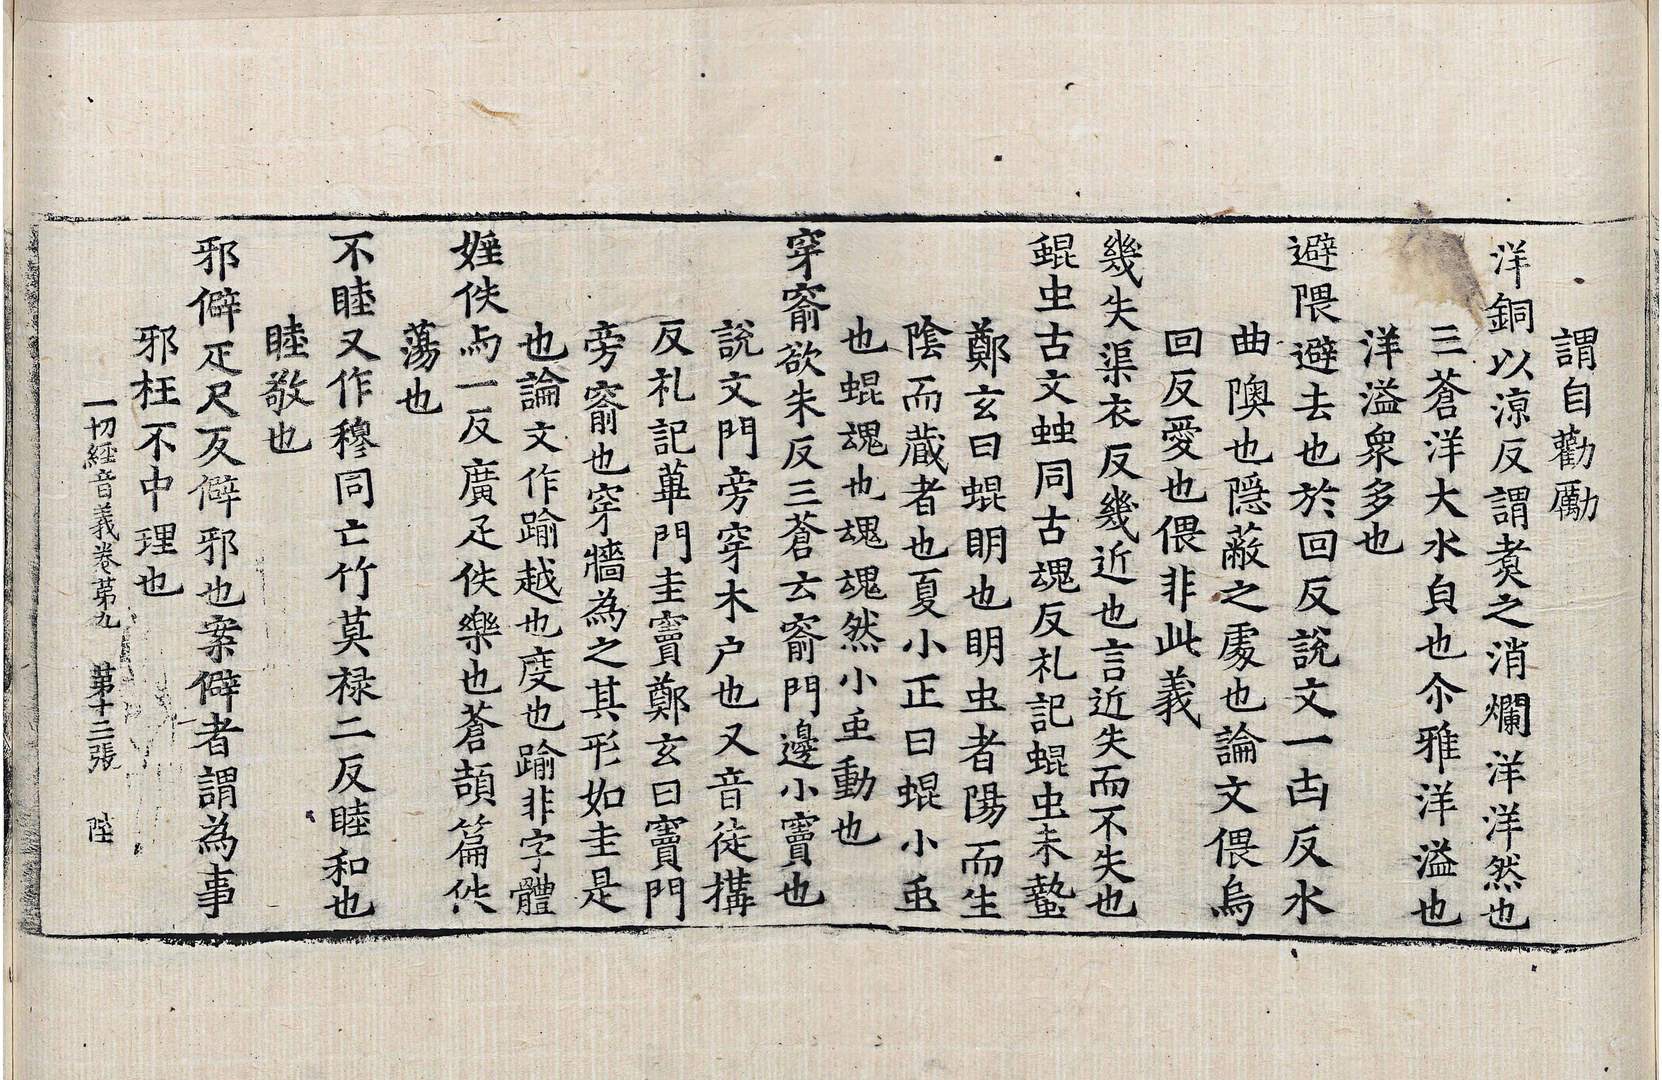 謂自勸勵
洋銅以涼反謂煑之消爛洋洋然也
三蒼洋大水皃也尒雅洋溢也
洋溢衆多也
避隈避去也於回反說文一凷反水
曲隩也隱蔽之處也論文偎烏
回反愛也偎非此義
幾失渠衣反幾近也言近失而不失也
蜫虫古文䖵同古魂反礼記蜫虫未蟄
鄭玄曰蜫明也明虫者陽而生
陰而蔵者也夏小正曰蜫小䖝
也蜫魂也魂魂然小䖝動也
穿窬欲朱反三蒼云窬門邊小竇也
說文門旁穿木户也又音徒搆
反礼記蓽門圭竇鄭玄曰竇門
旁窬也穿牆為之其形如圭是
也論文作踰越也度也踰非字體
婬佚与一反廣疋佚樂也蒼頡篇佚
蕩也
不睦又作穆同亡竹莫禄二反睦和也
睦敬也
邪僻疋尺反僻邪也案僻者謂為事
邪枉不中理也
一切經音義卷苐九 苐十二張 陞